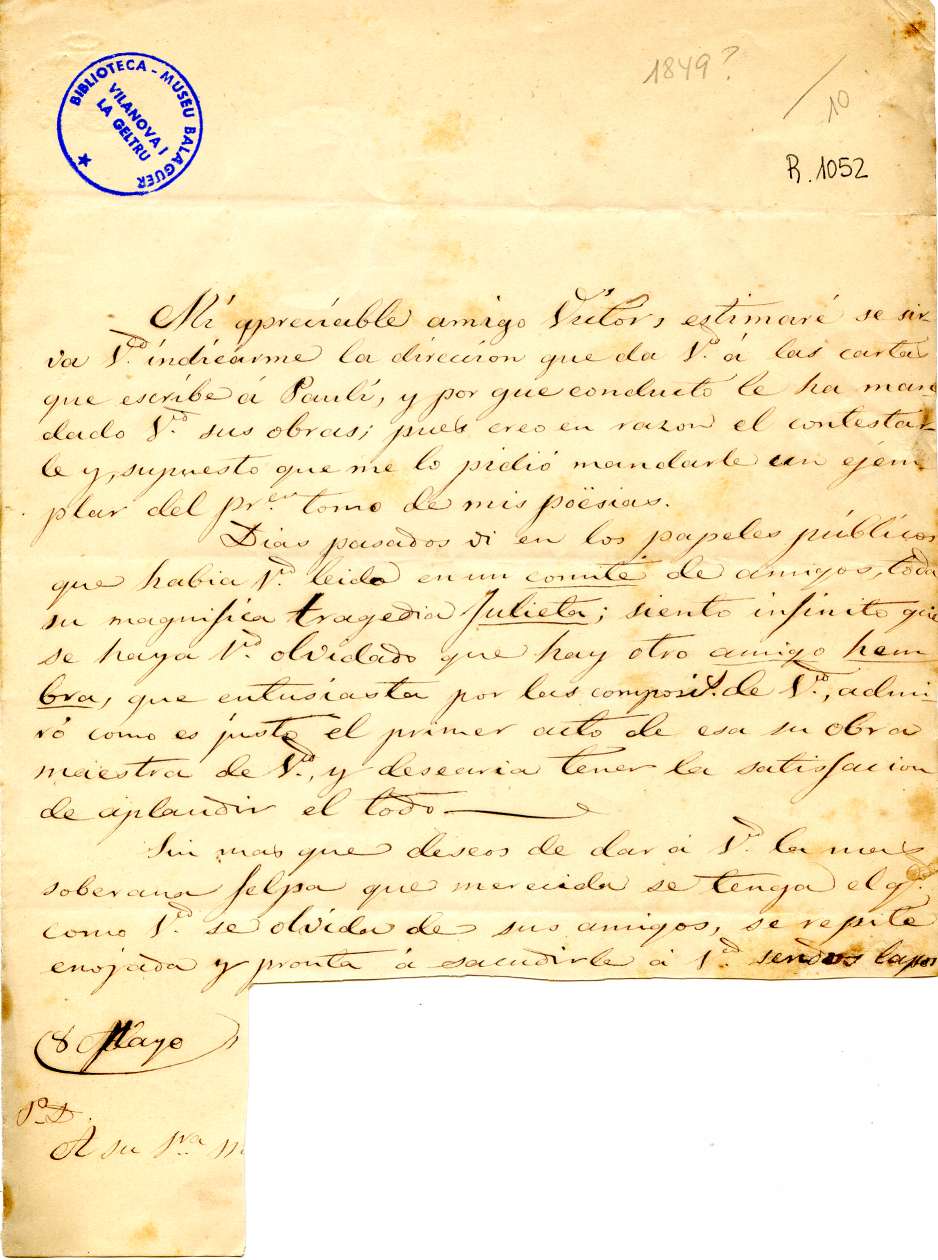 BIBLIOTECA - MUSEU BALAGUER
VILANOVA I
LA GELTRU
1849?
10
R. 1052
Mi apreciable amigo Victor, estimaré se sir-
va V.d indicarme la direccion que da V.d á las carta
que escribe á Paulí, y por que conducto le ha man-
dado V.d sus obras; pues creo en razon el contestar-
le y, supuesto que me lo pidió mandarle un ejem
plar del pr.er tomo de mis poësias.
Dias pasados vi en los papeles públicos
que habia V.d leido en un comité de amigos, toda
su magnifica tragedia Julieta; siento infinito que
se haya V.d olvidado que hay otro amigo hem
bra, que entusiasta por las composit. de V.d, admi-
ró como es justo el primer acto de esa su obra
maestra de V.d, y desearia tener la satisfacion
de aplaudir el todo
Sin mas que deseos de dar á V.d la mas
soberana felpa que merecida se tenga el q.e
como V.d se olvida de sus amigos, se repite
enojada y pronta á sacudirle á V.d sendos
8 Mayo
P.D.
A su S.ra